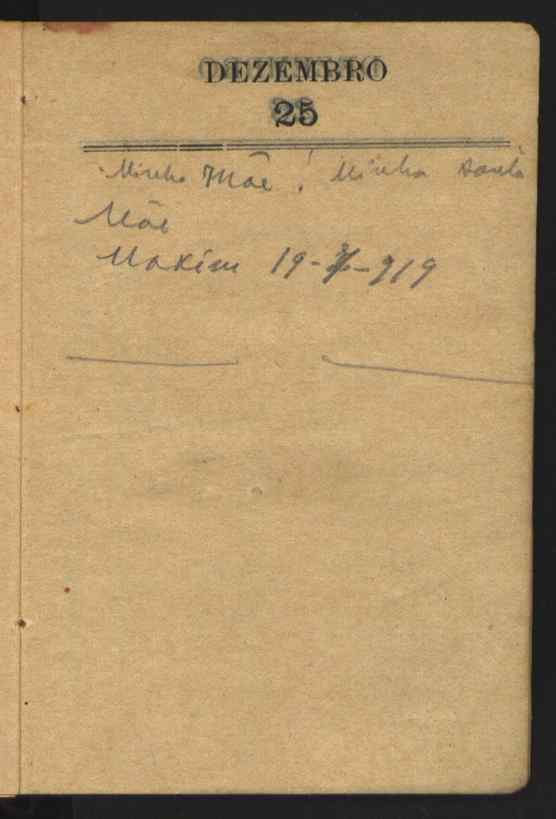 DEZEMBRO
25
Minha Mãe! Minha Santa
Mãe
Maxim 19- -919